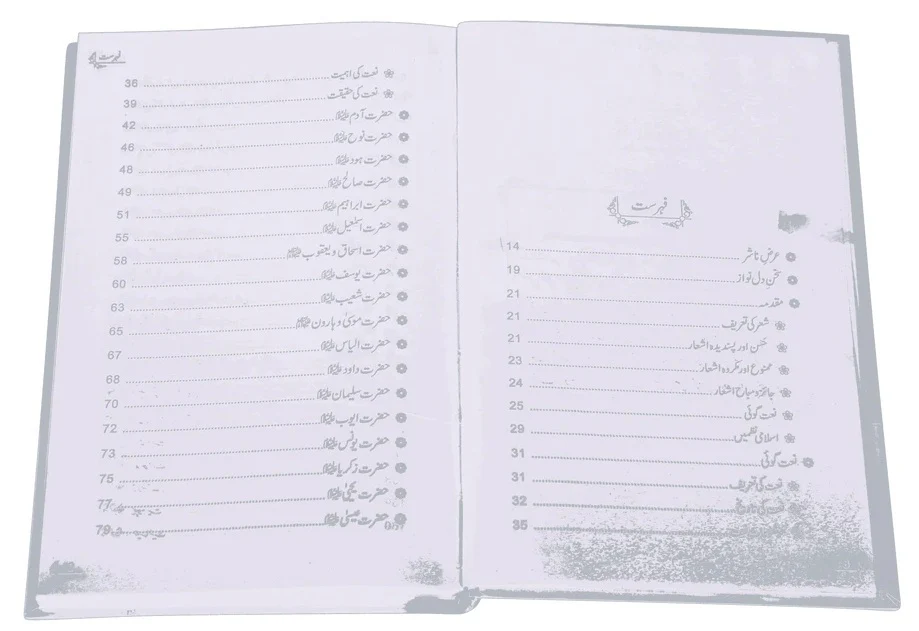 فہرست
عرضِ ناشر 14
سخنِ دل نواز 19
مقدمہ 21
شعر کی تعریف 21
حَسَن اور پسندیدہ اشعار 21
ممنوع اور مکروہ اشعار 23
جائز و مباح اشعار 24
نعت گوئی 25
اسلامی نظمیں 29
نعت گوئی 31
نعت کی تعریف 31
نعت کی تاریخ 32
35
فہرست
نعت کی اہمیت 36
نعت کی حقیقت 39
حضرت آدم علیہ السلام 42
حضرت نوح علیہ السلام 46
حضرت ہود علیہ السلام 48
حضرت صالح علیہ السلام 49
حضرت ابراہیم علیہ السلام 51
حضرت اسمٰعیل علیہ السلام 55
حضرت اسحاق و یعقوب علیہما السلام 58
حضرت یوسف علیہ السلام 60
حضرت شعیب علیہ السلام 63
حضرت موسیٰ و ہارون علیہما السلام 65
حضرت الیاس علیہ السلام 67
حضرت داود علیہ السلام 68
حضرت سلیمان علیہ السلام 70
حضرت ایوب علیہ السلام 72
حضرت یونس علیہ السلام 73
حضرت زکریا علیہ السلام 75
حضرت یحییٰ علیہ السلام 77
حضرت عیسیٰ علیہ السلام 79